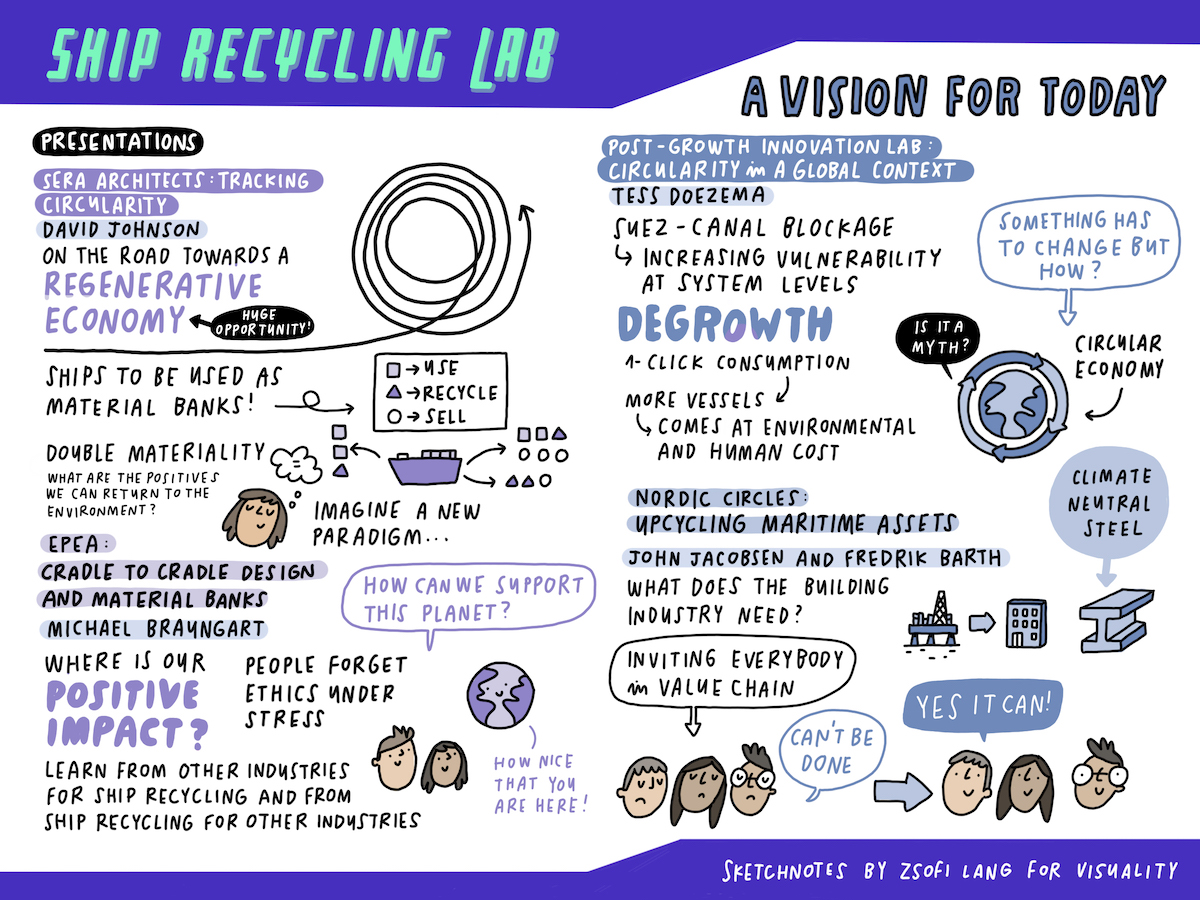 SHIP RECYCLING LAB
A VISION FOR TODAY
PRESENTATIONS
SERA ARCHITECTS: TRACKING
CIRCULARITY
DAVID JOHNSON
ON THE ROAD TOWARDS A
REGENERATIVE
ECONOMY
HUGE
OPPORTUNITY!
SHIPS TO BE USED AS
MATERIAL BANKS!
USE
RECYCLE
SELL
DOUBLE MATERIALITY
WHAT ARE THE POSITIVES
WE CAN RETURN TO THE
ENVIRONMENT?
IMAGINE A NEW
PARADIGM...
EPEA:
CRADLE TO CRADLE DESIGN
AND MATERIAL BANKS
MICHAEL BRAUNGART
HOW CAN WE SUPPORT
THIS PLANET?
WHERE IS OUR
POSITIVE
IMPACT?
PEOPLE FORGET
ETHICS UNDER
STRESS
HOW NICE
THAT YOU
ARE HERE!
LEARN FROM OTHER INDUSTRIES
FOR SHIP RECYCLING AND FROM
SHIP RECYCLING FOR OTHER INDUSTRIES
POST-GROWTH INNOVATION LAB:
CIRCULARITY in A GLOBAL CONTEXT
TESS DOEZEMA
SUEZ-CANAL BLOCKAGE
INCREASING VULNERABILITY
AT SYSTEM LEVELS
SOMETHING HAS
TO CHANGE BUT
HOW?
DEGROWTH
1-CLICK CONSUMPTION
MORE VESSELS
COMES AT ENVIRONMENTAL
AND HUMAN COST
IS IT A
MYTH?
CIRCULAR
ECONOMY
NORDIC CIRCLES:
UPCYCLING MARITIME ASSETS
JOHN JACOBSEN AND FREDRIK BARTH
WHAT DOES THE BUILDING
INDUSTRY NEED?
CLIMATE
NEUTRAL
STEEL
INVITING EVERYBODY
in VALUE CHAIN
CAN'T BE
DONE
YES IT CAN!
SKETCHNOTES BY ZSOFI LANG FOR VISUALITY